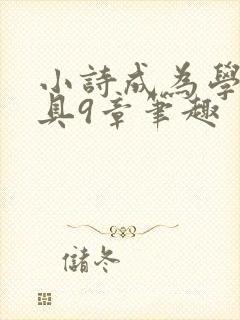 小詩成為學
具9章筆趣
儲冬